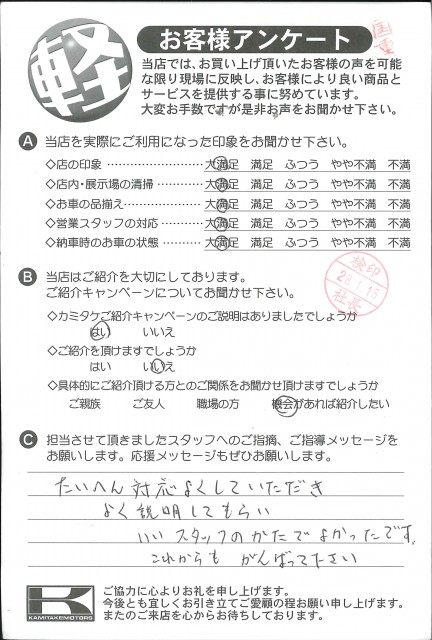 軽
お客様アンケート
当店では、お買い上げ頂いたお客様の声を可能
な限り現場に反映し、お客様により良い商品と
サービスを提供する事に努めています。
大変お手数ですが是非お声をお聞かせ下さい。
A 当店を実際にご利用になった印象をお聞かせ下さい。
◇店の印象 ………………… 大満足 満足 ふつう やや不満 不満
◇店内・展示場の清掃 ………… 大満足 満足 ふつう やや不満 不満
◇お車の品揃え ……………… 大満足 満足 ふつう やや不満 不満
◇営業スタッフの対応 ………… 大満足 満足 ふつう やや不満 不満
◇納車時のお車の状態 ………… 大満足 満足 ふつう やや不満 不満
検印
社長
B 当店はご紹介を大切にしております。
ご紹介キャンペーンについてお聞かせ下さい。
◇カミタケご紹介キャンペーンのご説明はありましたでしょうか
はい いいえ
◇ご紹介を頂けますでしょうか
はい いいえ
◇具体的にご紹介頂ける方とのご関係をお聞かせ頂けますでしょうか
ご親族 ご友人 職場の方 機会があれば紹介したい
C 担当させて頂きましたスタッフへのご指摘、ご指導メッセージを
お願いします。応援メッセージもぜひお願いします。
たいへん対応よくしていただき
よく説明してもらい
いいスタッフのかたでよかったです。
これからも がんばって下さい
K
KAMITAKEMOTORS
ご協力に心よりお礼を申し上げます。
今後とも宜しくお引き立てご愛顧の程お願い申し上げます。
またのご来店を心からお待ちしております。